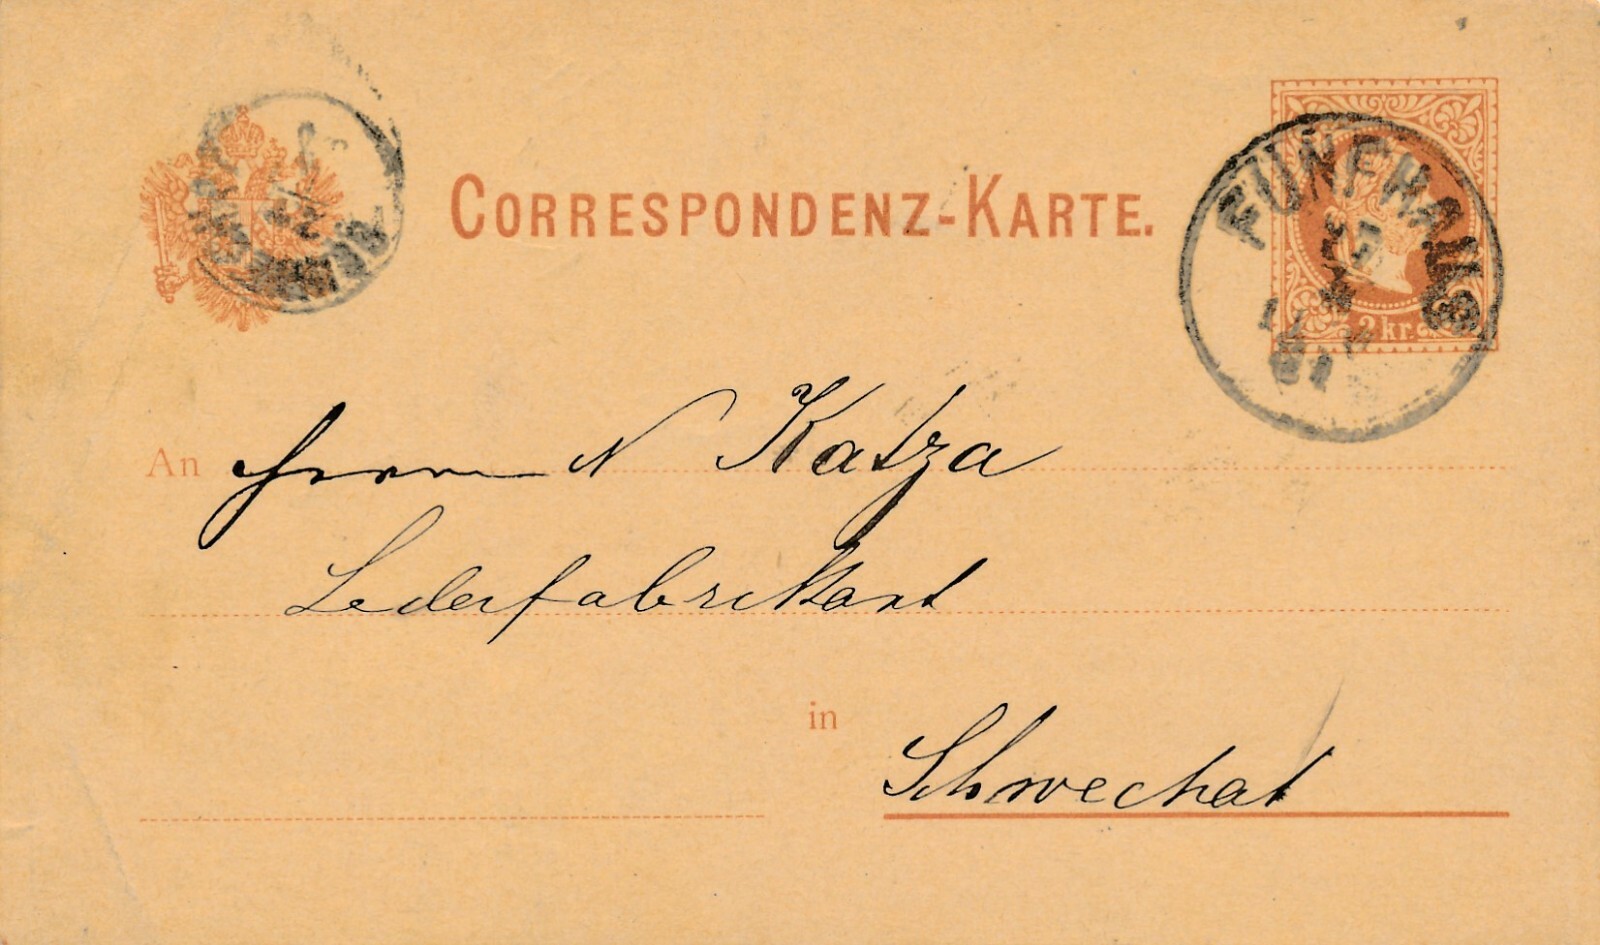 CORRESPONDENZ-KARTE.
FÜNFHAUS
2 kr.
An Herrn N Katza
Lederfabrikant
in Schwechat